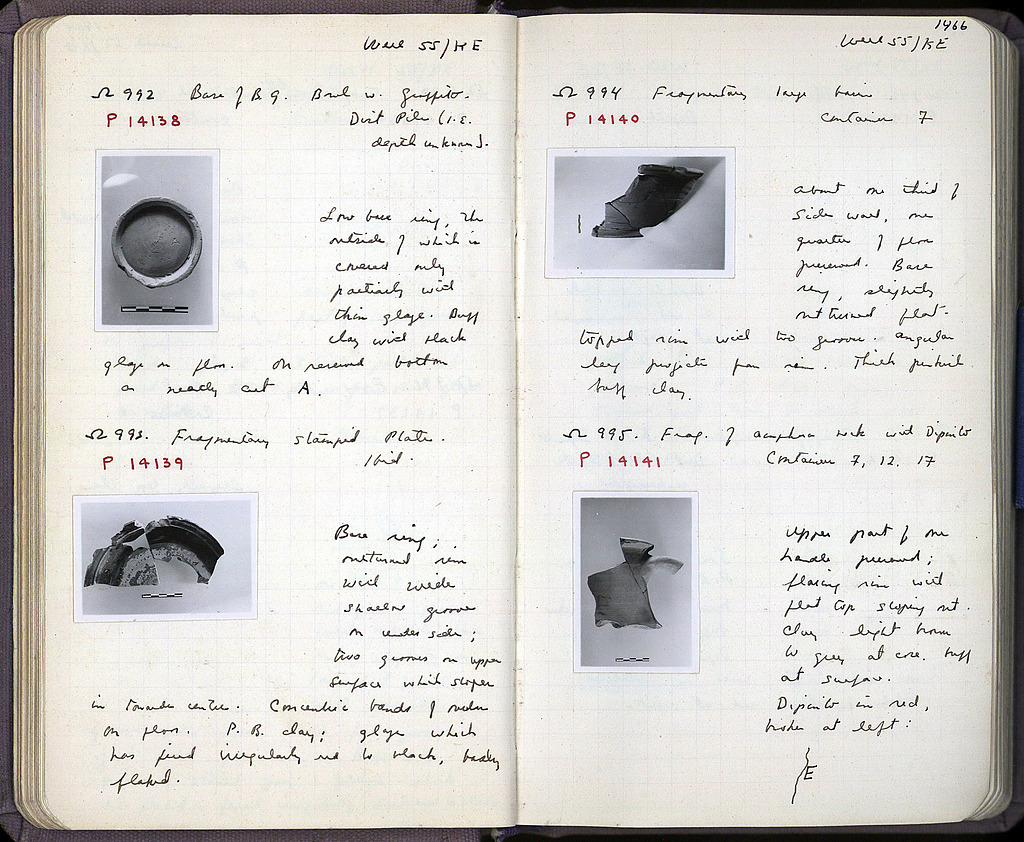 Well 55/KE
Ω 992 Base of B.G. Bowl w. graffito.
P 14138
Dist Pile (i.e.
depth unknown).
Low base ring, the
outside of which is
covered only
partially with
thin glaze. Buff
clay with black
glaze on floor. On reserved bottom
a neatly cut A.
Ω 993. Fragmentary stamped Plate.
P 14139
Ibid.
Base ring;
outturned rim
with wide
shallow groove
on under side;
two grooves on upper
surface which slopes
in towards centre. Concentric bands of
on floor. P.B. clay; glaze which
has fired irregularly red to black, badly
flaked.
1466
Well 55/KE
Ω 994 Fragmentary large basin
P 14140
Container 7
About one third of
side wall, one
quarter of floor
preserved. Base
ring, slightly
outturned flat-
topped rim with two grooves. Angular
projects from rim. Thick pinkish
buff clay.
Ω 995. Frag. of amphora neck with Dipinto
P 14141
Container 7, 12, 17
Upper part of one
handle preserved;
flaring rim with
flat top sloping out.
Clay light brown
to grey at core, buff
at surface.
Dipinto in red,
broken at left:
E